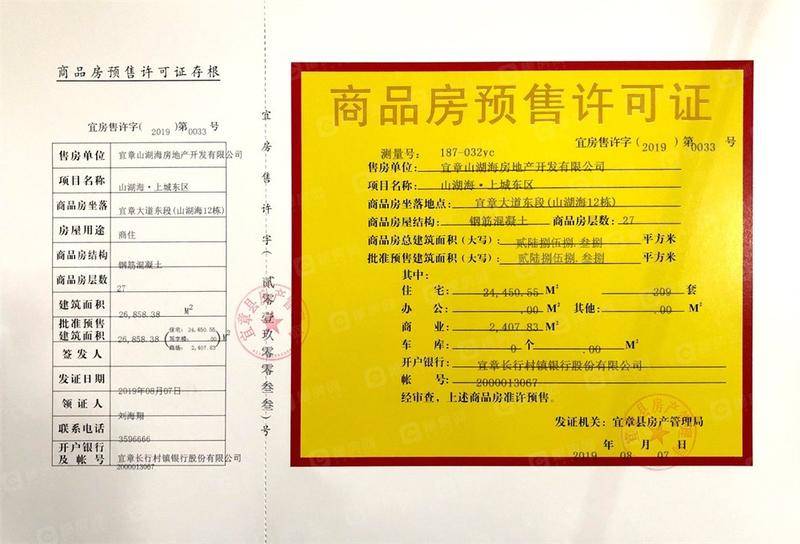 商品房预售许可证存根
宜房售许字( 2019 )第0033 号
售房单位 宜章山湖海房地产开发有限公司
项目名称 山湖海·上城东区
商品房坐落 宜章大道东段(山湖海12栋)
房屋用途 商住
商品房结构 钢筋混凝土
商品房层数 27
建筑面积 26,858.38 M²
批准预售建筑面积 26,858.38 (住宅: 24,450.55 写字楼: .00 商场: 2,407.83) M²
签发人
发证日期 2019年08月07日
领证人 刘海翔
联系电话 3596666
开户银行及帐号 宜章长行村镇银行股份有限公司
2000013067
宜房售许字(贰零壹玖零零叁叁)号
商品房预售许可证
宜房售许字( 2019 )第0033 号
测量号: 187-032yc
售房单位: 宜章山湖海房地产开发有限公司
项目名称: 山湖海·上城东区
商品房坐落地点: 宜章大道东段(山湖海12栋)
商品房屋结构: 钢筋混凝土 商品房层数: 27
商品房总建筑面积(大写): 贰陆捌伍捌.叁捌 平方米
批准预售建筑面积(大写): 贰陆捌伍捌.叁捌 平方米
其中:
住 宅: 24,450.55 M² 209 套
办 公: .00 M² 其他: .00 M²
商 业: 2,407.83 M²
车 库: 0 个 .00 M²
开户银行: 宜章长行村镇银行股份有限公司
帐 号: 2000013067
经审查,上述商品房准许预售。
发证机关: 宜章县房产管理局
年 月 日
2019 08 07